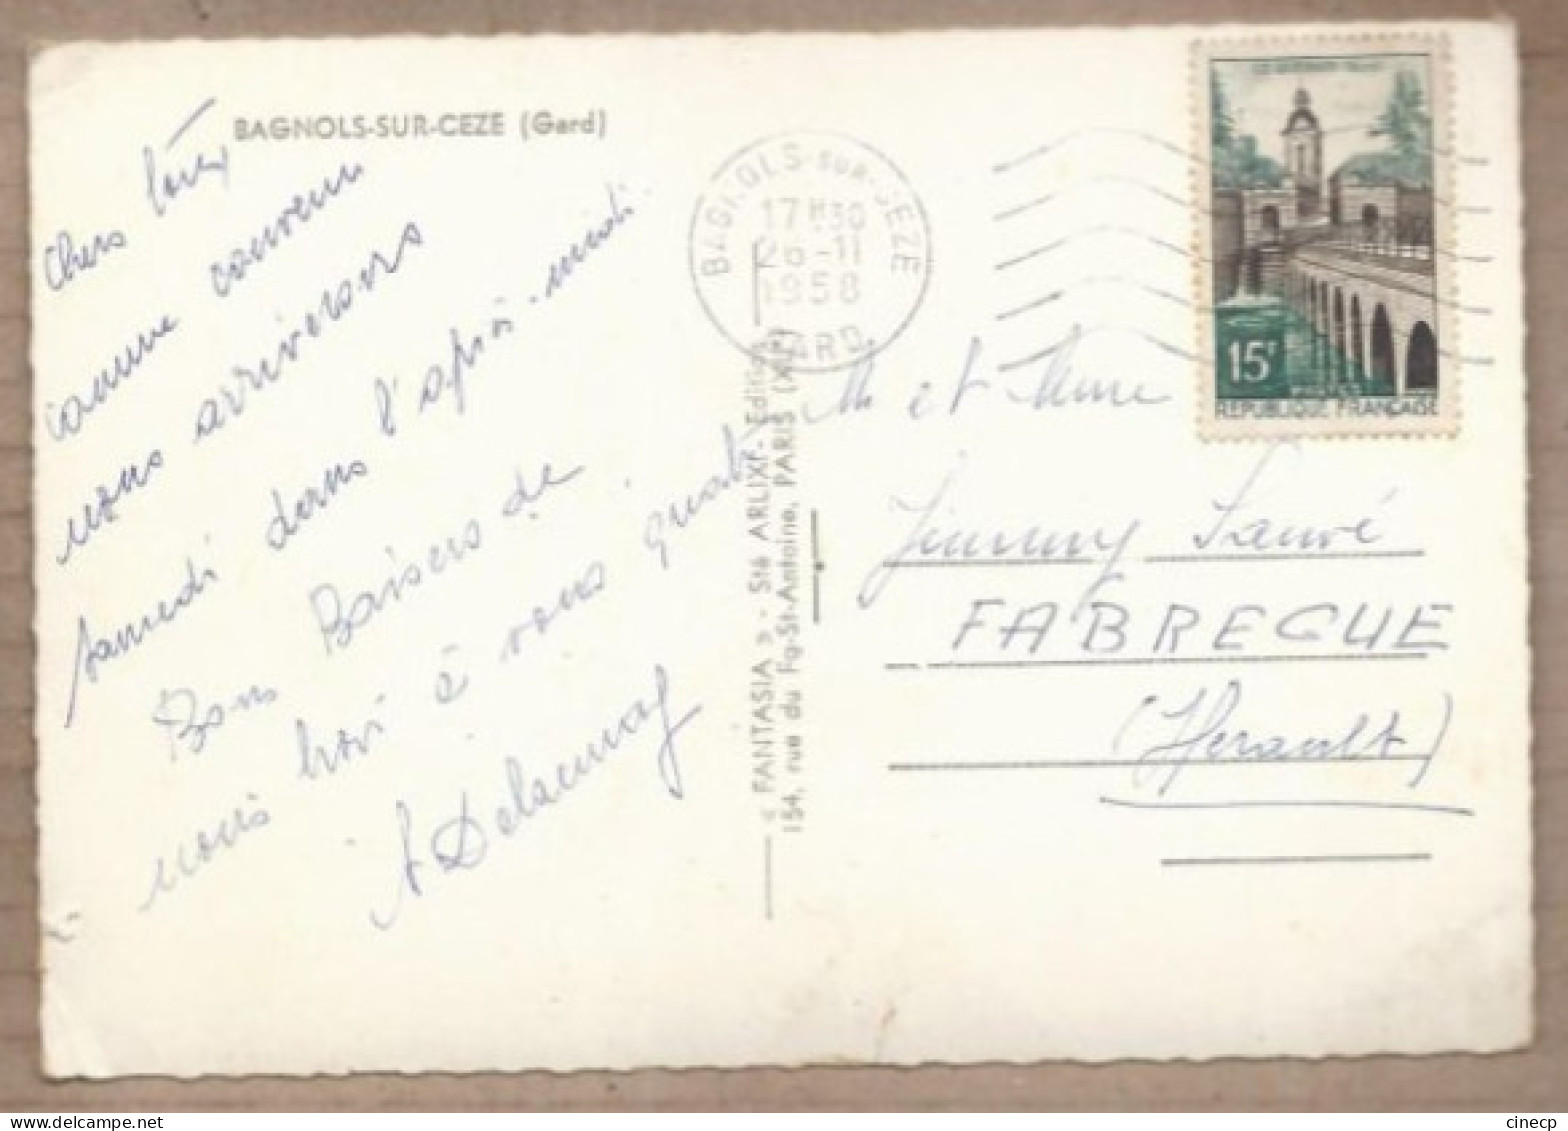 BAGNOLS-SUR-CEZE (Gard)
Chers tous
comme convenu
nous arriverons
samedi dans l'après-midi.
Bons Baisers de
nous trois à vous quatre
A Delaunay
« FANTASIA » - Sté ARLIX - Edition
154, rue du Fg-St-Antoine, PARIS (XII)
BAGNOLS-sur-CEZE
17H30
26-11
1958
GARD
15F
REPUBLIQUE FRANÇAISE
M et Mme
Jimmy Sauvé
FABREGUE
(Herault)
cinecp